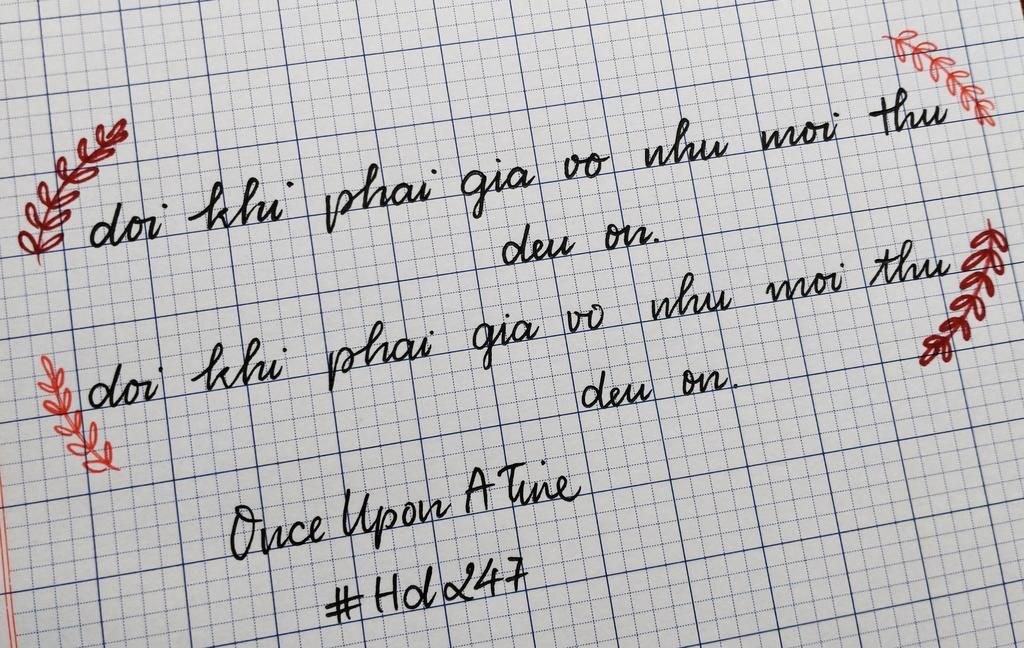 doi khi phai gia vo nhu moi thu
deu on.
doi khi phai gia vo nhu moi thu
deu on.
Once Upon A Tine
#Hd247